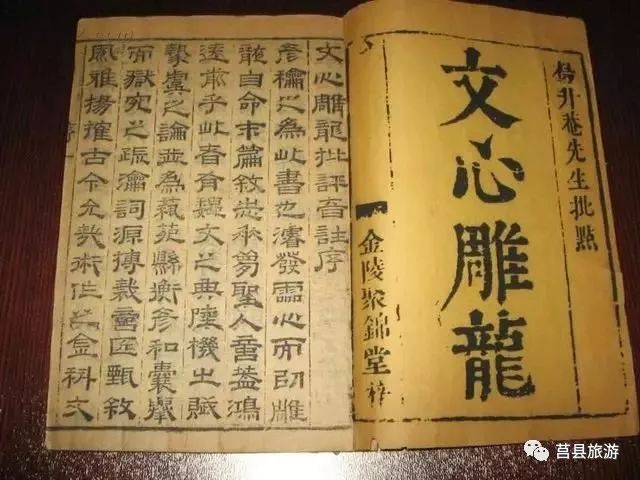 楊升菴先生批點
文心雕龍
金陵聚錦堂梓
文心雕龍批評音註序
彥龢之為此書也濬發靈心而以雕
龍自命末篇敘志夢聖人意蓋鴻
遠前乎此者有魏文之典陸機之賦
摯虞之論並為藝苑縣衡彥和囊舉
而獄究之疏瀹詞源摶裁意匠甄敘
風雅揚搉古今允哉術作之金科文
莒县旅游